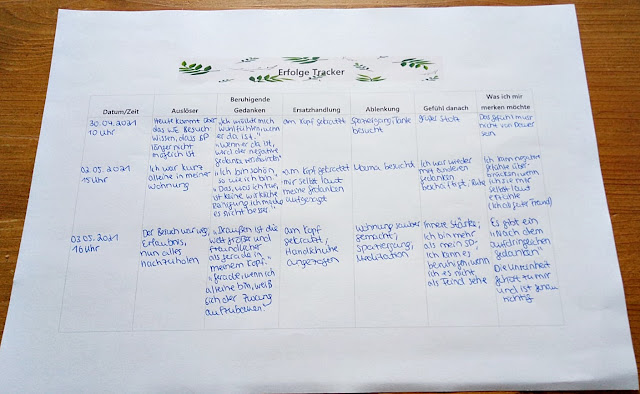 Erfolge Tracker
Datum/Zeit
Auslöser
Beruhigende
Gedanken
Ersatzhandlung
Ablenkung
Gefühl danach
Was ich mir
merken möchte
30.04.2021
10 Uhr
Heute kommt über
das WE Besuch
Wissen, dass SP
länger nicht
möglich ist.
„Ich würde mich
wohl fühlen, wenn
er da ist."
„Wenn er da ist,
wird der negative
am Kopf gekratzt
Spaziergang, Tante
besucht
großer Stolz
Das Gefühl muss
nicht von Dauer
sein
02.05.2021
15 Uhr
Ich war kurz
alleine in meiner
Wohnung
„Ich bin schön,
so wie ich bin"
„Das, was ich tue,
ist keine wirkliche
Reinigung. Ich mache
es nicht besser."
am Kopf gekratzt
mir selbst laut
meine Gedanken
aufgesagt
Mama besucht
Ich war wieder
mit anderen
Gedanken
beschäftigt, Ruhe
Ich kann negative
Gefühle über-
brücken, wenn
ich sie mir
selbst laut
erzähle
(Ich als guter Freund)
03.05.2021
16 Uhr
Der Besuch war weg,
Erlaubnis,
nun alles
nachzuholen
„Draußen ist die
Welt größer und
freundlicher
als gerade in
meinem Kopf."
„Gerade, wenn ich
alleine bin, weiß
sich der Zwang
aufzubereiten"
am Kopf
gekratzt,
Handschuhe
angezogen
Wohnung sauber
gemacht,
Spaziergang,
Meditation
Innere Stärke;
Ich bin mehr
als mein SP;
Ich kann es
beruhigen, wenn
ich es nicht
als Feind sehe
Es gibt ein
"Nach dem
aufdringlichen
Gedanken"
Die Unreinheit
gehört zu mir
und ist genau
richtig